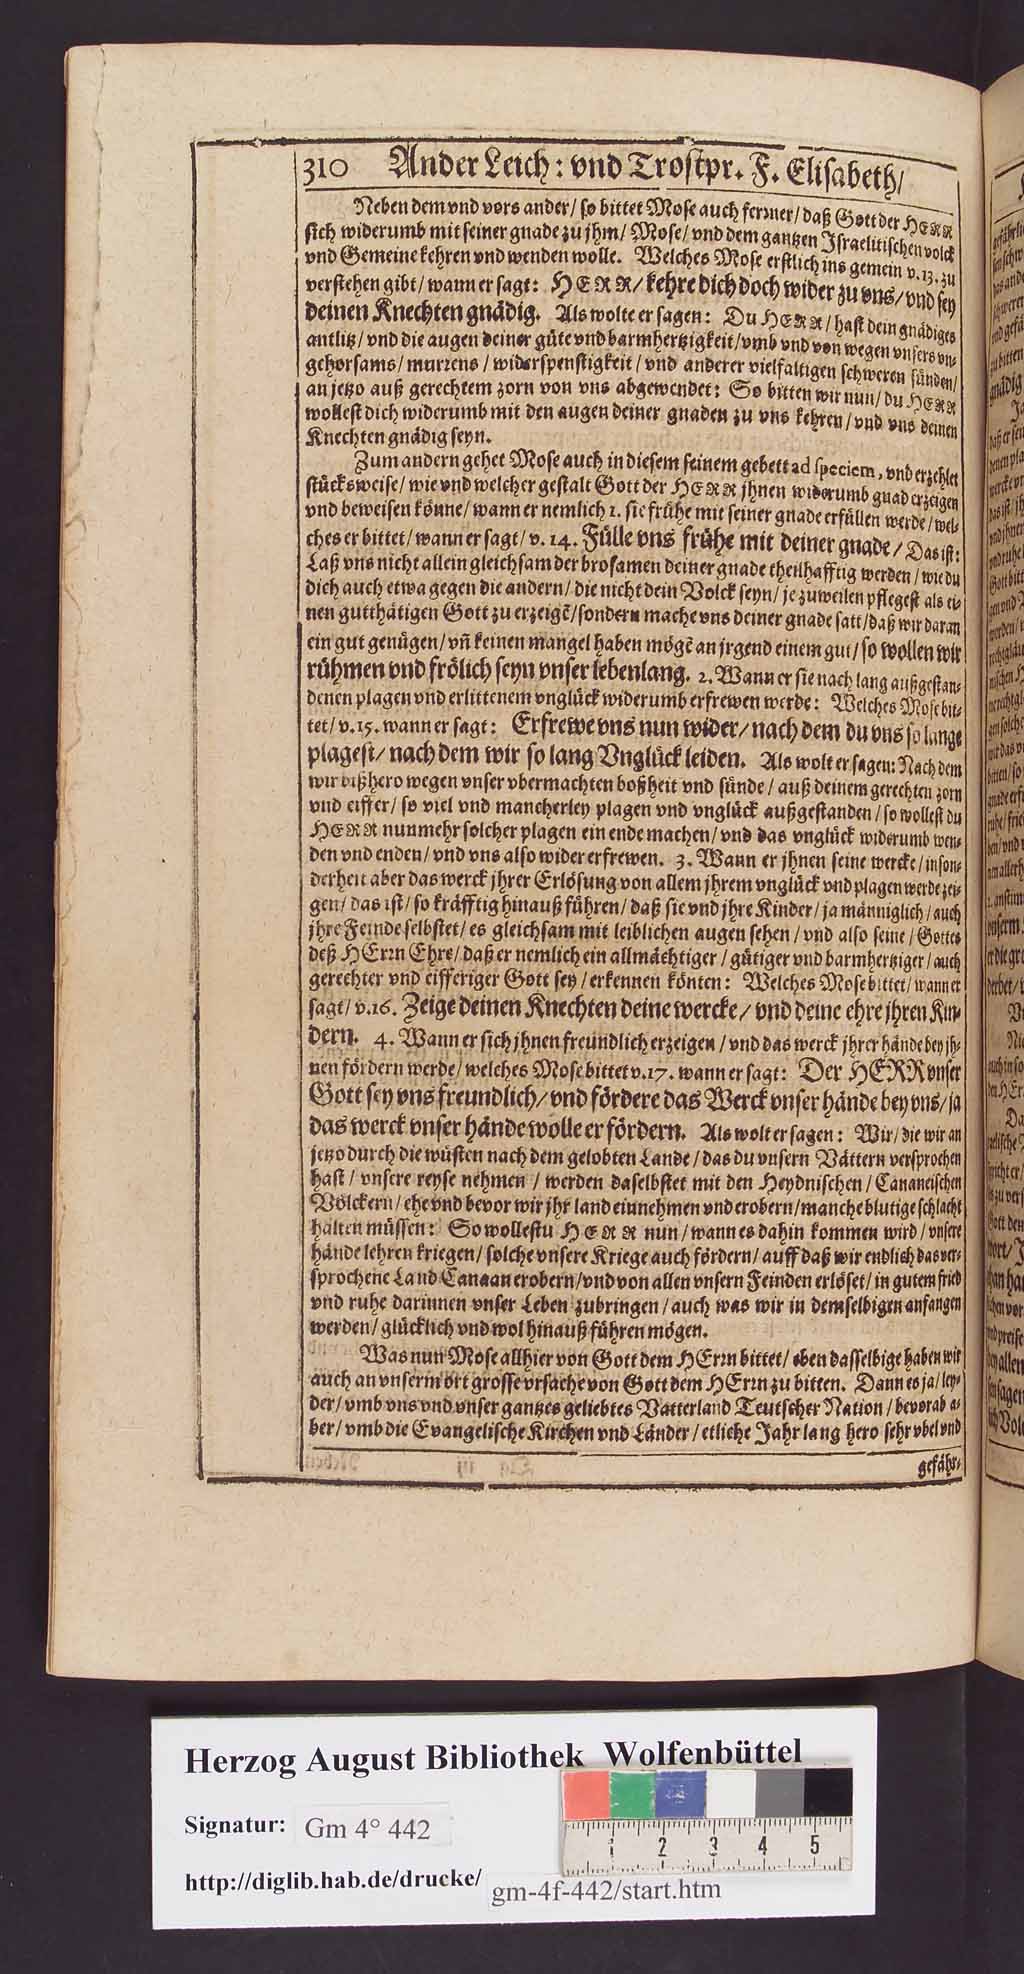 310 Ander Leich: vnd Trostpr. F. Elisabeth/
Neben dem vnd vors ander/ so bittet Mose auch ferrner/ daß Gott der HERR
sich widerumb mit seiner gnade zu jhm/ Mose/ vnd dem gantzen Israelitischen volck
vnd Gemeine kehren vnd wenden wolle. Welches Mose erstlich ins gemein v. 13. zu
verstehen gibt/ wann er sagt: HERR/ kehre dich doch wider zu vns/ vnd sey
deinen Knechten gnädig. Als wolte er sagen: Du HERR/ hast dein gnädiges
antlitz/ vnd die augen deiner güte vnd barmhertzigkeit/ vmb vnd von wegen vnsers vn-
gehorsams/ murrens/ widerspenstigkeit/ vnd anderer vielfaltigen schweren sünden/
an jetzo auß gerechtem zorn von vns abgewendet: So bitten wir nun/ du HERR
wollest dich widerumb mit den augen deiner gnaden zu vns kehren/ vnd vns deinen
Knechten gnädig seyn.
Zum andern gehet Mose auch in diesem seinem gebett ad speciem, vnd erzehlet
stücksweise/ wie vnd welcher gestalt Gott der HERR jhnen widerumb gnad erzeigen
vnd beweisen könne/ wann er nemlich 1. sie frühe mit seiner gnade erfüllen werde/ wel-
ches er bittet/ wann er sagt/ v. 14. Fülle vns frühe mit deiner gnade/ Das ist:
Laß vns nicht allein gleichsam der brosamen deiner gnade theilhafftig werden/ wie du
dich auch etwa gegen die andern/ die nicht dein Volck seyn/ je zuweilen pflegest als ei-
nen gutthätigen Gott zu erzeigē/ sondern mache vns deiner gnade satt/ daß wir daran
ein gut genügen/ vñ keinen mangel haben mögē an jrgend einem gut/ so wollen wir
rühmen vnd frölich seyn vnser lebenlang. 2. Wann er sie nach lang außgestan-
denen plagen vnd erlittenem vnglück widerumb erfrewen werde: Welches Mose bit-
tet/ v. 15. wann er sagt: Erfrewe vns nun wider/ nach dem du vns so lange
plagest/ nach dem wir so lang Vnglück leiden. Als wolt er sagen: Nach dem
wir bißhero wegen vnser vbermachten boßheit vnd sünde/ auß deinem gerechten zorn
vnd eiffer/ so viel vnd mancherley plagen vnd vnglück außgestanden/ so wollest du
HERR nunmehr solcher plagen ein ende machen/ vnd das vnglück widerumb wen-
den vnd enden/ vnd vns also wider erfrewen. 3. Wann er jhnen seine wercke/ inson-
derheit aber das werck jhrer Erlösung von allem jhrem vnglück vnd plagen werde zei-
gen/ das ist/ so kräfftig hinauß führen/ daß sie vnd jhre Kinder/ ja männiglich/ auch
jhre Feinde selbstet/ es gleichsam mit leiblichen augen sehen/ vnd also seine/ Gottes
deß HErrn Ehre/ daß er nemlich ein allmächtiger/ gütiger vnd barmhertziger/ auch
gerechter vnd eifferiger Gott sey/ erkennen könten: Welches Mose bittet/ wann er
sagt/ v. 16. Zeige deinen Knechten deine wercke/ vnd deine ehre jhren Kin-
dern. 4. Wann er sich jhnen freundlich erzeigen/ vnd das werck jhrer hände bey jh-
nen fördern werde/ welches Mose bittet v. 17. wann er sagt: Der HERR vnser
Gott sey vns freundlich/ vnd fördere das Werck vnser hände bey vns/ ja
das werck vnser hände wolle er fördern. Als wolt er sagen: Wir/ die wir an
jetzo durch die wüsten nach dem gelobten Lande/ das du vnsern Vättern versprochen
hast/ vnsere reyse nehmen/ werden daselbstet mit den Heydnischen/ Cananeischen
Völckern/ ehe vnd bevor wir jhr land einnehmen vnd erobern/ manche blutige schlacht
halten müssen: So wollestu HERR nun/ wann es dahin kommen wird/ vnsere
hände lehren kriegen/ solche vnsere Kriege auch fördern/ auff daß wir endlich das ver-
sprochene Land Canaan erobern/ vnd von allen vnsern Feinden erlöset/ in gutem fried
vnd ruhe darinnen vnser Leben zubringen/ auch was wir in demselbigen anfangen
werden/ glücklich vnd wol hinauß führen mögen.
Was nun Mose allhier von Gott dem HErrn bittet/ eben dasselbige haben wir
auch an vnserm ort grosse vrsache von Gott dem HErrn zu bitten. Dann es ja/ ley-
der/ vmb vns vnd vnser gantzes geliebtes Vatterland Teutscher Nation/ bevorab a-
ber/ vmb die Evangelische Kirchen vnd Länder/ etliche Jahr lang hero sehr vbel vnd
gefähr-
Herzog August Bibliothek Wolfenbüttel
Signatur: Gm 4° 442
1 2 3 4 5
http://diglib.hab.de/drucke/ gm-4f-442/start.htm